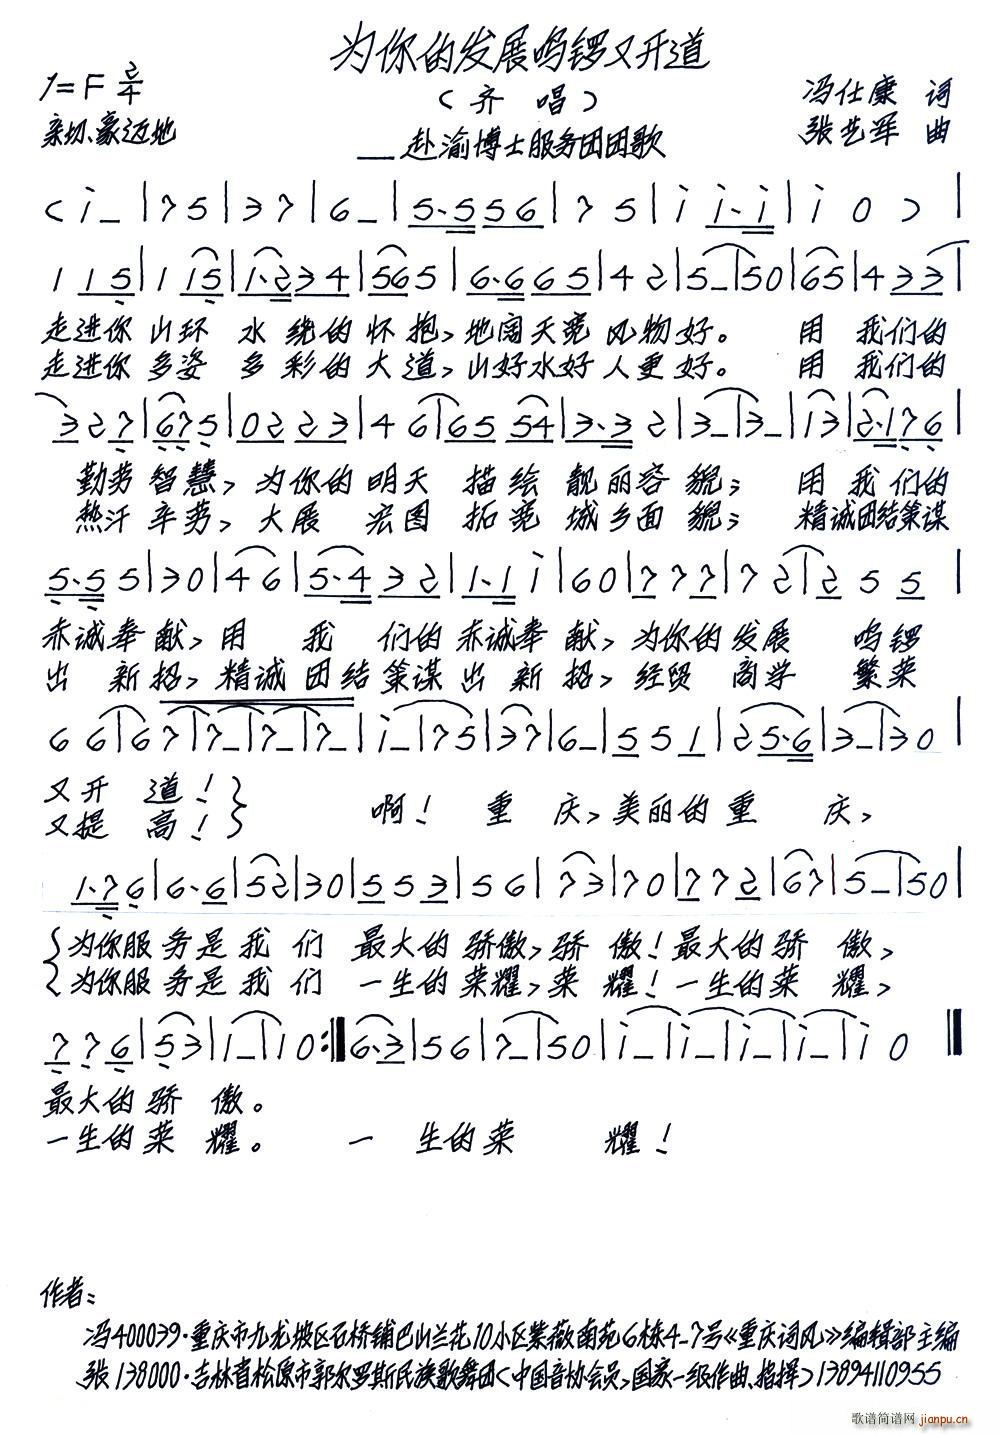 为你的发展鸣锣又开道
1=F 2/4
(齐 唱)
冯仕康 词
亲切、豪迈地
——赴渝博士服务团团歌
张艺军 曲
(i - | 7 5 | 3 7 | 6 - | 5·5 5 6 | 7 5 | i i·i | i 0 ) |
1 1 5 | 1 1 5 | 1·2 3 4 | 5 6 5 | 6·6 6 5 | 4 2 | 5 - | 5 0 | 6 5 | 4 3 3 |
走进你 山环 水 绕的 怀 抱,地阔天宽 风物好。 用 我们的
走进你 多姿 多 彩的 大 道,山好水好 人更好。 用 我们的
3 2 7 | 6 7 5 | 0 2 2 3 | 4 6 | 6 5 5 4 | 3·3 2 | 3 - | 3 - | 1 3 | 2·1 7 6 |
勤劳 智慧,为你的 明天 描绘 靓丽容 貌; 用 我们的
热汗 辛劳,大展 宏图 拓宽 城乡面 貌; 精诚团结策谋
5·5 5 | 3 0 | 4 6 | 5·4 3 2 | 1·1 i | 6 0 | 7 7 7 | 7 2 | 2 5 5 |
赤诚奉 献,用 我 们的 赤诚奉 献,为你的 发展 鸣锣
出 新招,精诚 团结 策谋 出 新 招,经贸 商学 繁荣
6 6 | 6 7 | 7 - | 7 - | 7 - | i - | 7 5 | 3 7 | 6 - | 5 5 1 | 2 5·6 | 3 - | 3 0 |
又开 道!
又提 高! 啊! 重 庆,美丽的 重 庆,
1·7 6 | 6·6 | 5 2 | 3 0 | 5 5 3 | 5 6 | 7 3 | 7 0 | 7 7 2 | 6 7 | 5 - | 5 0 |
为你服 务是 我 们 最大的 骄傲,骄 傲!最大的 骄 傲,
为你服 务是 我 们 一生的 荣耀,荣 耀!一生的 荣 耀,
7 7 6 | 5 3 | 1 - | 1 0 :‖ 6·3 | 5 6 | 7 - | 5 0 | i - | i - | i - | i - | i 0 ‖
最大的 骄 傲。
一生的 荣 耀。 一 生的 荣 耀!
作者:
冯400039·重庆市九龙坡区石桥铺巴山兰花10小区紫薇南苑6栋4-7号《重庆词风》编辑部主编
张138000·吉林省松原市郭尔罗斯民族歌舞团(中国音协会员,国家一级作曲、指挥)13894110955
歌谱简谱网 jianpu.cn